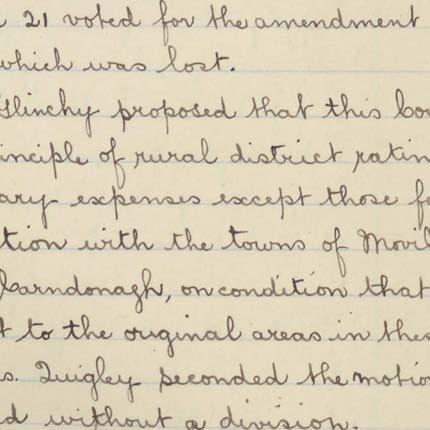 21 voted for the amendment
which was lost.
Glinchy proposed that this Cou
inciple of rural district ratin
ary expenses except those fo
tion with the towns of Movil
Carndonagh, on condition that
t to the original areas in thes
s. Quigley seconded the motio
d without a division.